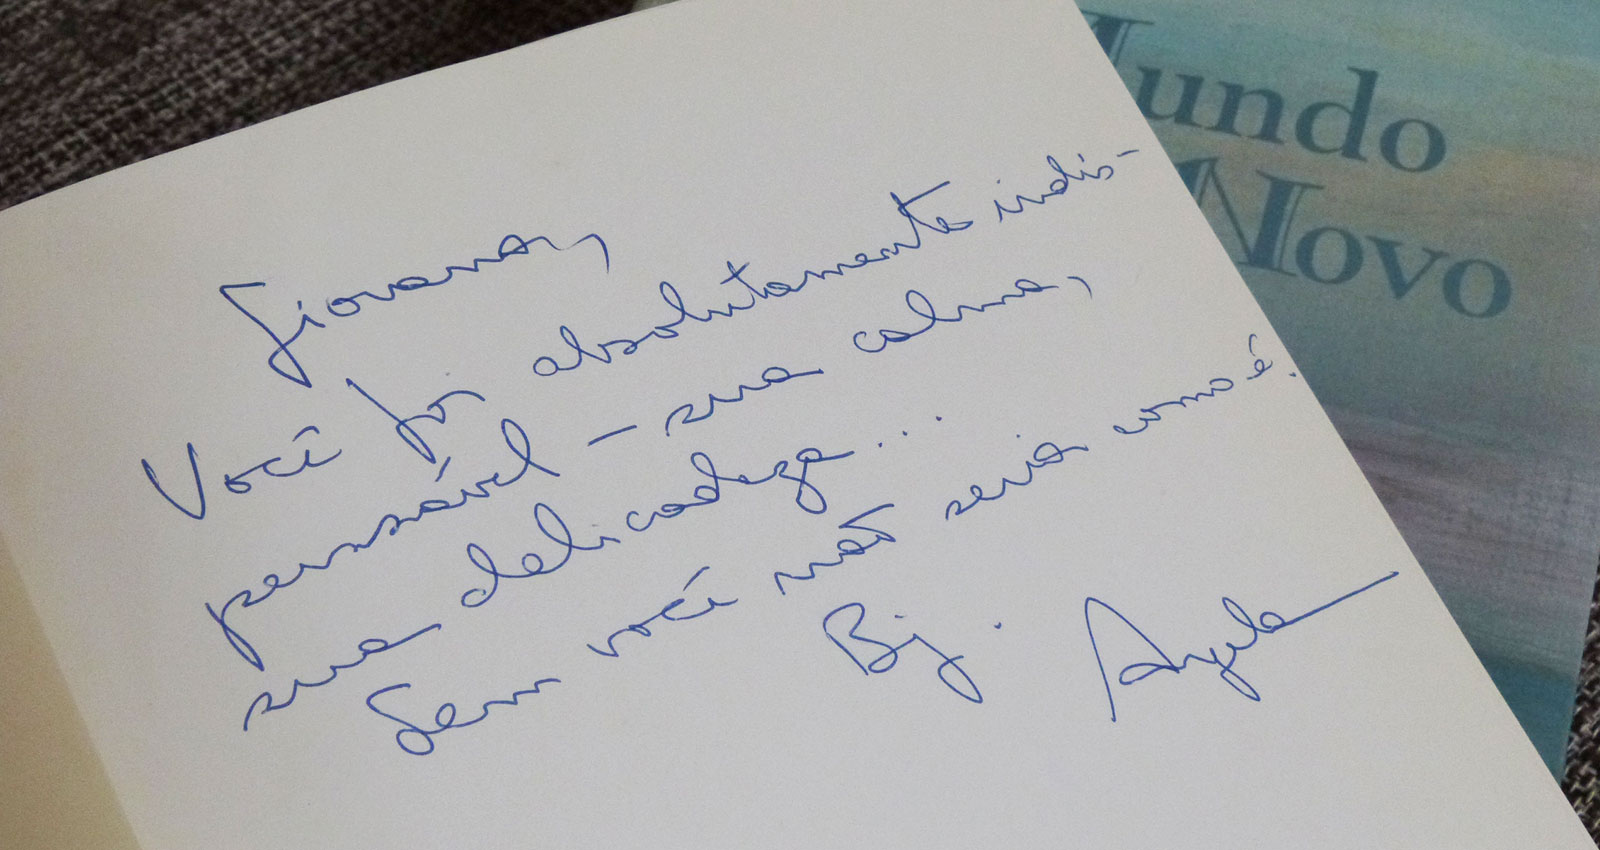 Giovana,
Você foi absolutamente indis-
pensável - sua calma,
sua delicadeza...
Sem você não seria como é.
Bj. Angela
Mundo
Novo